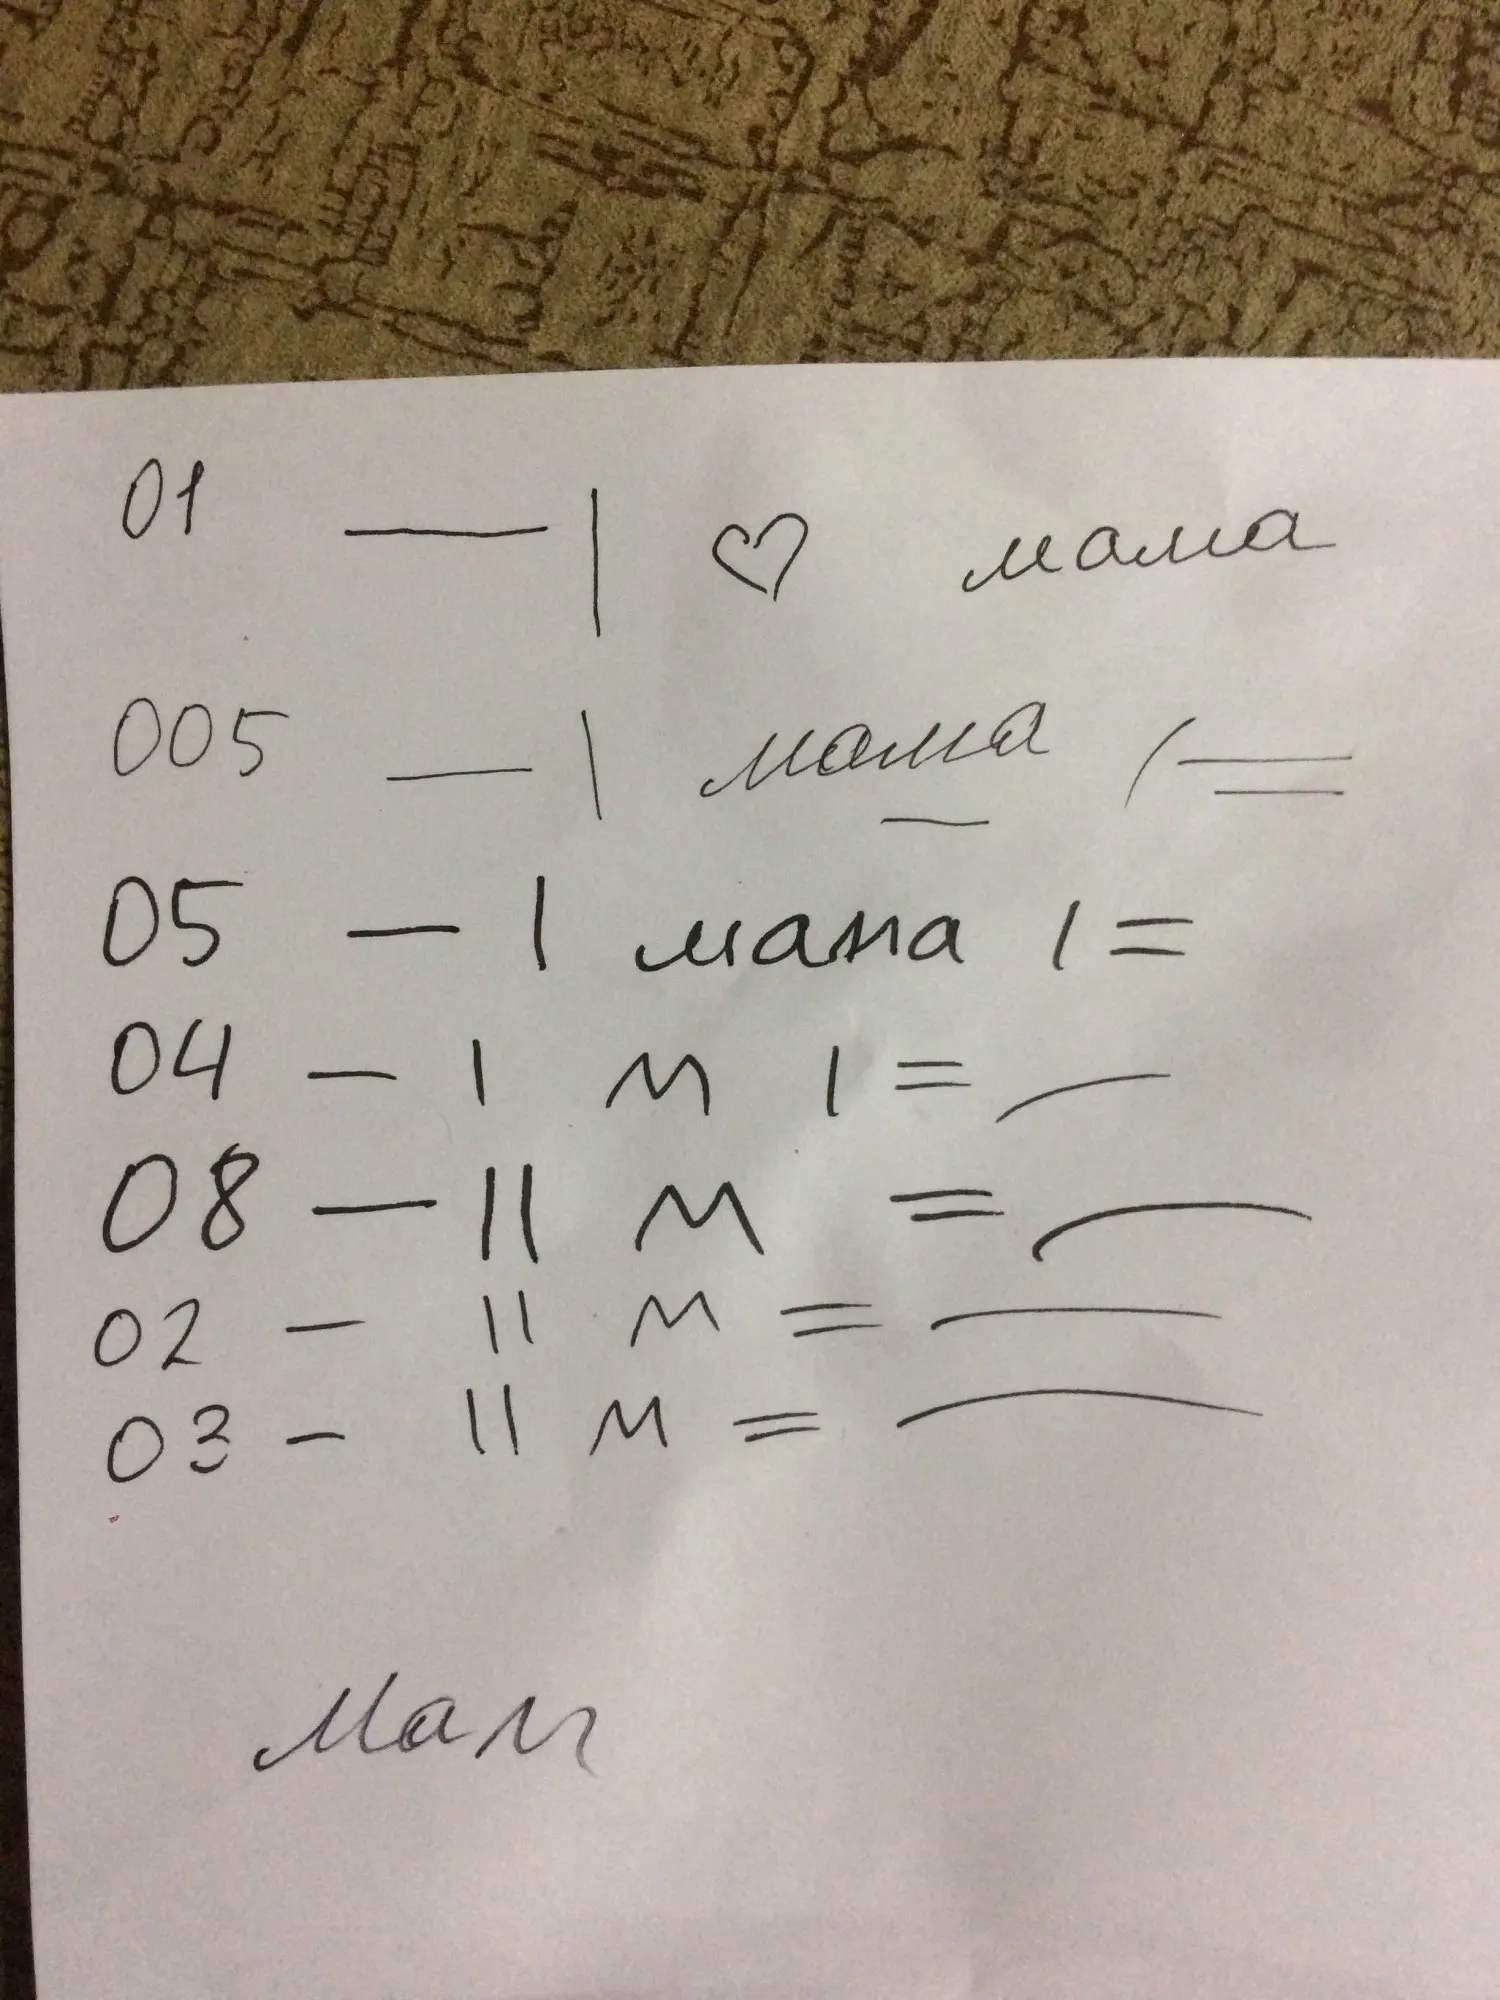 01 — | ♡ мама
005 — | мама / =
05 — | мама | =
04 — | м | = —
08 — || м = —
02 — || м = —
03 — || м = —
мам